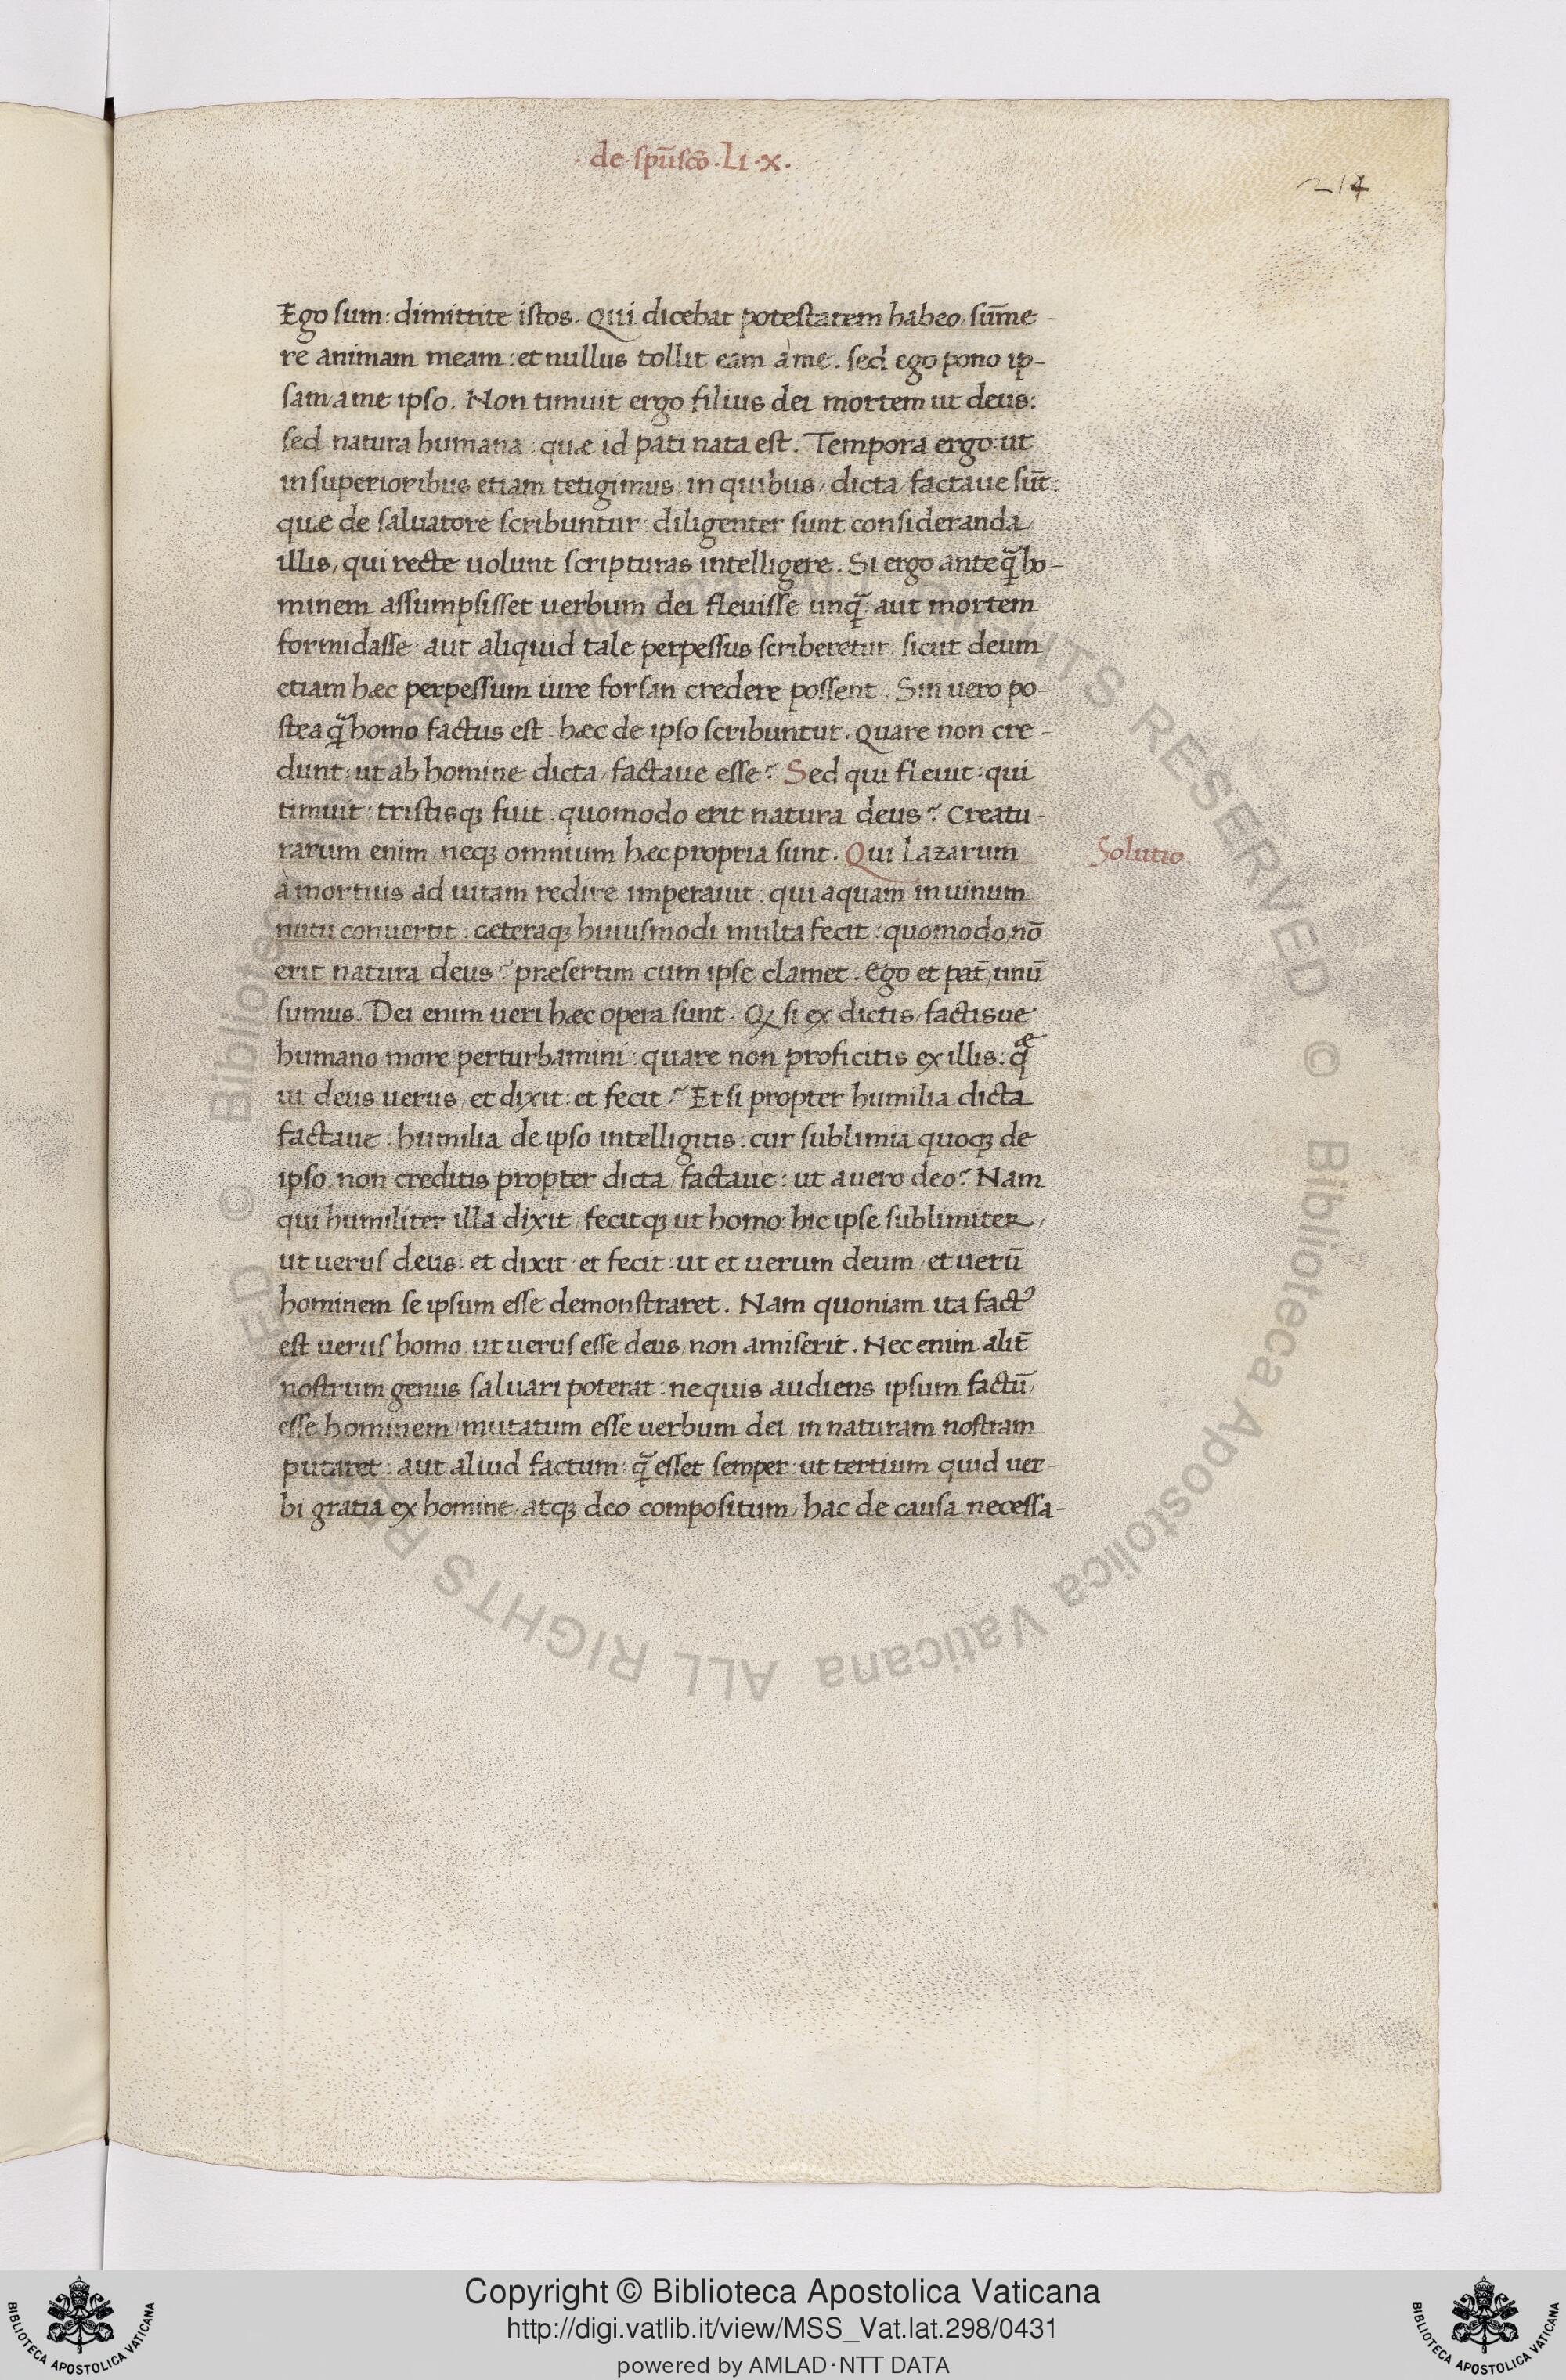 · de · sp̄usc̄o · Li · x ·
214
Ego sum: dimittite istos. Qui dicebat potestatem habeo, sūme-
re animam meam: et nullus tollit eam à me. sed ego pono ip-
sam, a me ipso. Non timuit ergo filius dei mortem ut deus:
sed natura humana: quæ id pati nata est. Tempora ergo: ut
in superioribus etiam tetigimus, in quibus, dicta, factaue sūt:
quæ de saluatore scribuntur: diligenter sunt consideranda,
illis, qui recte uolunt scripturas intelligere. Si ergo anteq̃ ho-
minem assumpsisset uerbum dei fleuisse unq̃: aut mortem
formidasse: aut aliquid tale perpessus scriberetur, sicut deum
etiam hæc perpessum iure forsan credere possent. Sin uero po-
stea q̃ homo factus est: hæc de ipso scribuntur. Quare non cre-
dunt: ut ab homine dicta, factaue esse? Sed qui fleuit: qui
timuit: tristisq; fuit. quomodo erit natura deus? Creatu-
rarum enim, neq; omnium hæc propria sunt. Qui Lazarum
Solutio
à mortuis ad uitam redire imperauit. qui aquam in uinum
nutu conuertit: cæteraq; huiusmodi multa fecit: quomodo, nō
erit natura deus? præsertim cum ipse clamet. Ego et pat̄, unū
sumus. Dei enim ueri hæc opera sunt. Q; si ex dictis, factisue
humano more perturbamini: quare non proficitis ex illis: qæ
ut deus uerus, et dixit: et fecit? Et si propter humilia dicta
factaue: humilia de ipso intelligitis: cur sublimia quoq; de
ipso, non creditis propter dicta, factaue: ut a uero deo? Nam
qui humiliter illa dixit, fecitq; ut homo: hic ipse sublimiter,
ut uerus deus: et dixit: et fecit: ut et uerum deum, et uerū
hominem se ipsum esse demonstraret. Nam quoniam ita fact᾽
est uerus homo, ut uerus esse deus, non amiserit. Nec enim alit̄
nostrum genus saluari poterat: ne quis audiens ipsum factū,
esse hominem, mutatum esse uerbum dei in naturam nostram
putaret: aut aliud factum: q̃ esset semper: ut tertium quid uer-
bi gratia ex homine, atq; deo compositum, hac de causa necessa-
© Biblioteca Apostolica Vaticana ALL RIGHTS RESERVED
Copyright © Biblioteca Apostolica Vaticana
http://digi.vatlib.it/view/MSS_Vat.lat.298/0431
powered by AMLAD·NTT DATA
BIBLIOTECA APOSTOLICA VATICANA
BIBLIOTECA APOSTOLICA VATICANA